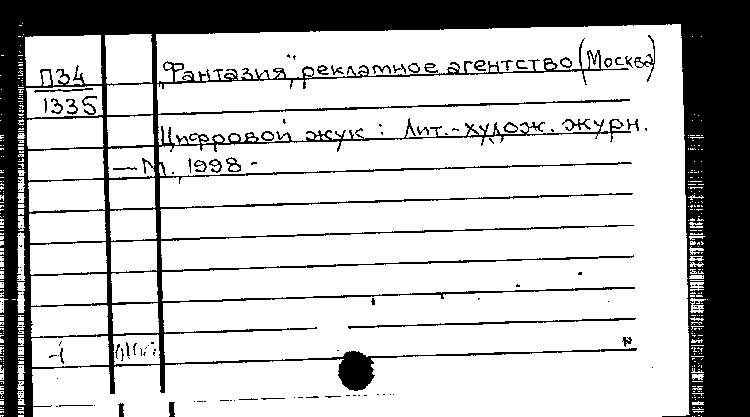 П34 „Фантазия", рекламное агентство (Москва)
1335
Цифровой жук : Лит.-худож. журн.
— М., 1998 -